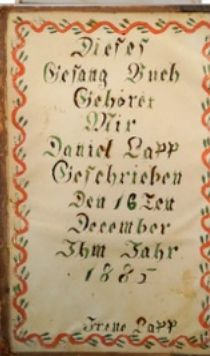 Dieses
Gesang Buch
Gehöret
Mir
Daniel Lapp
Geschrieben
Den 16 Ten
December
Ihm Jahr
1885
Irene Lapp